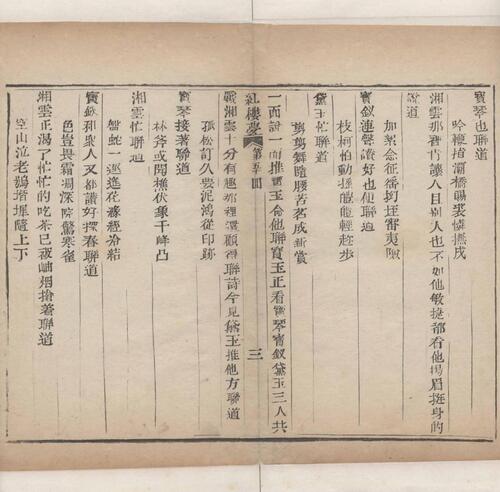 寶琴也聯道
吟鞭指灞橋賜裘憐撫戍
湘雲那里肯讓人且別人也不如他敏捷都看他揚眉挺身的
說道
加絮念征徭坳垤審夷險
寶釵連聲讚好也便聯道
枝柯怕動搖皚皚輕趁步
黛玉忙聯道
剪剪舞隨腰苦茗成新賞
一面說一面推寶玉命他聯寶玉正看寶琴寶釵黛玉三人共
紅樓夢 第五十回 三
戰湘雲十分有趣那裡還顧得聯詩今見黛玉推他方聯道
孤松訂久要泥鴻從印跡
寶琴接著聯道
林斧或聞樵伏象千峰凸
湘雲忙聯道
盤蛇一逕遙花緣經冷結
寶釵和衆人又都讚好探春聯道
色豈畏霜凋深院驚寒雀
湘雲正渴了忙忙的吃茶已被岫烟搶著聯道
空山泣老鴞堦墀隨上下